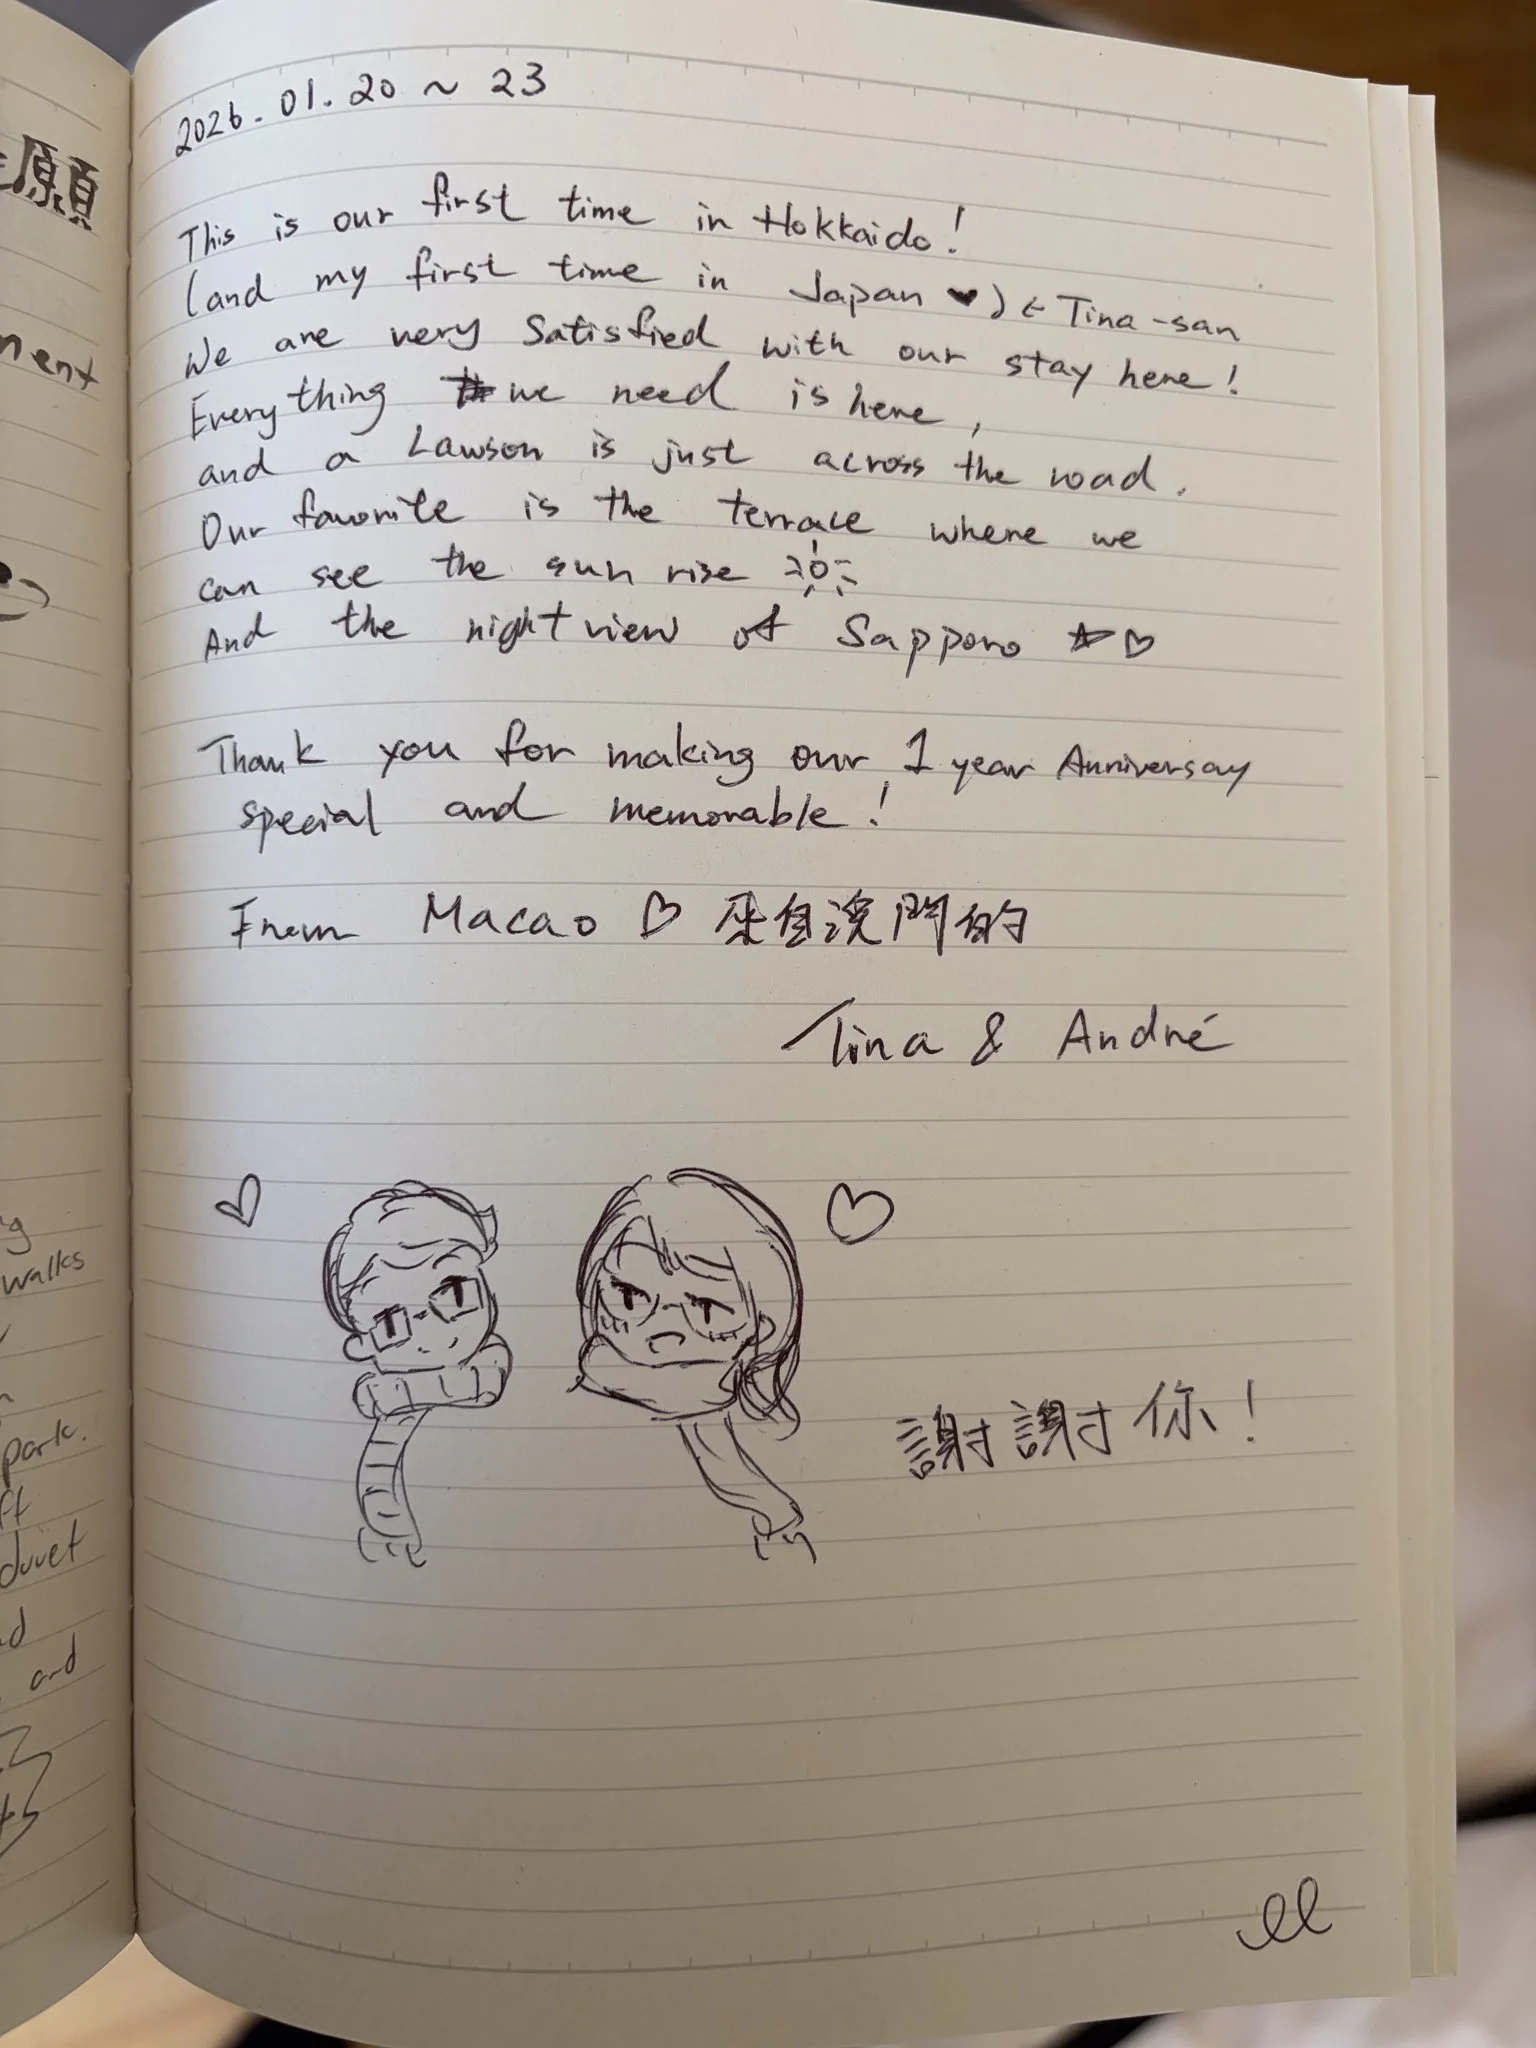 願
ment
g
walks
park.
duvet
and
2026.01.20 ~ 23
This is our first time in Hokkaido!
(and my first time in Japan ♥) ← Tina-san
We are very satisfied with our stay here!
Everything we need is here,
and a Lawson is just across the road.
Our favorite is the terrace where we
can see the sun rise
And the night view of Sapporo ☆♡
Thank you for making our 1 year Anniversay
special and memorable!
From Macao ♡ 來自澳門的
Tina & André
謝謝你!